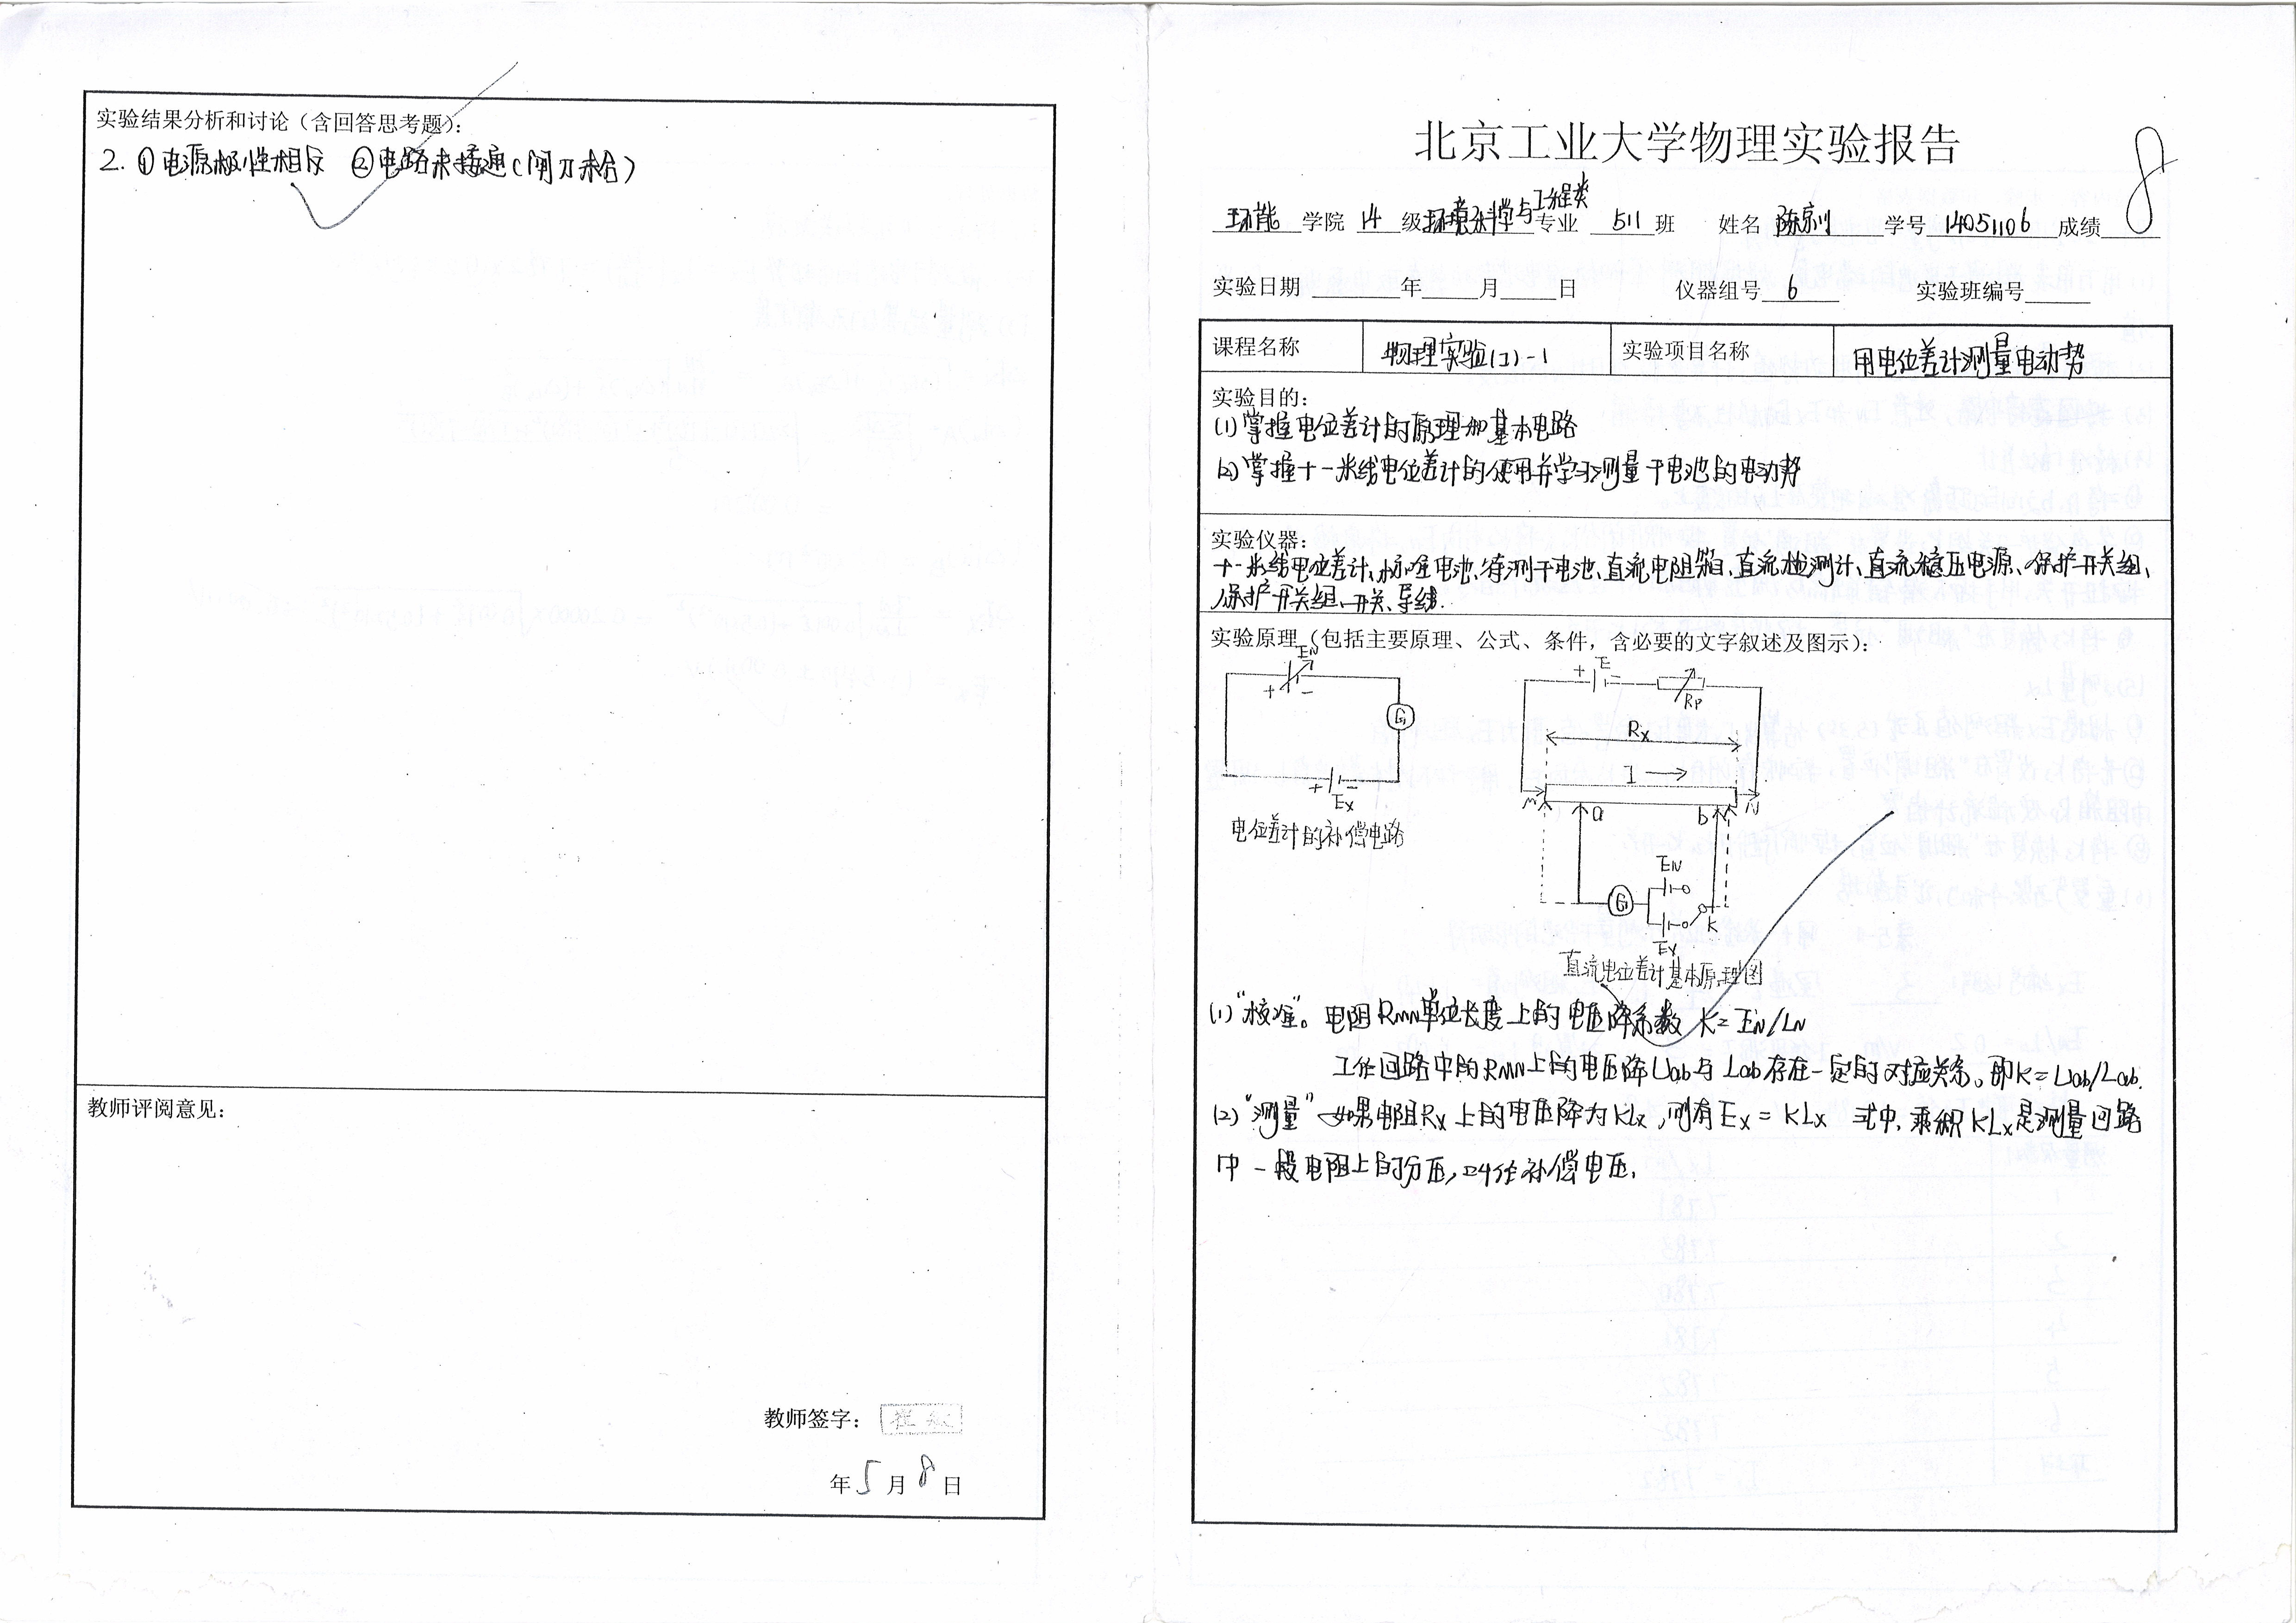 实验结果分析和讨论（含回答思考题）：
2. ①电源极性相反 ②电路未接通（闸刀未合）
教师评阅意见：
教师签字：
年5月8日
北京工业大学物理实验报告
8
环能 学院 14 级 环境科学与工程类 专业 511 班 姓名 陈京川 学号 14051106 成绩
实验日期 年 月 日 仪器组号 6 实验班编号
课程名称 物理实验(I)-1 实验项目名称 用电位差计测量电动势
实验目的：
(1)掌握电位差计的原理和基本电路
(2)掌握十一米线电位差计的使用并学习测量干电池的电动势
实验仪器：
十一米线电位差计、标准电池、待测干电池、直流电阻箱、直流检测计、直流稳压电源、保护开关组、
保护开关组、开关、导线.
实验原理（包括主要原理、公式、条件，含必要的文字叙述及图示）：
EN
+ -
G
+ -
Ex
电位差计的补偿电路
+ E -
RP
Rx
I
M N
a b
EN
G
K
Ex
直流电位差计基本原理图
(1)“校准”。电阻RMN单位长度上的电压降系数 K=EN/LN
工作回路中的RMN上的电压降Uab与Lab存在一定的对应关系。即K=Uab/Lab.
(2)“测量” 如果电阻Rx上的电压降为KLx,则有Ex=KLx 式中,乘积KLx是测量回路
中一段电阻上的分压,叫作补偿电压.